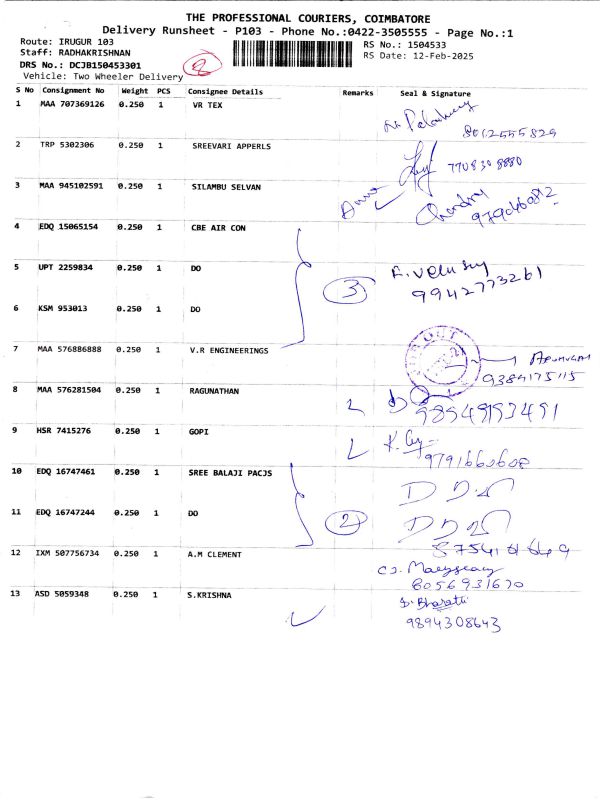 THE PROFESSIONAL COURIERS, COIMBATORE
Delivery Runsheet - P103 - Phone No.:0422-3505555 - Page No.:1
Route: IRUGUR 103
RS No.: 1504533
Staff: RADHAKRISHNAN
RS Date: 12-Feb-2025
DRS No.: DCJB150453301
Vehicle: Two Wheeler Delivery
S No Consignment No Weight PCS Consignee Details Remarks Seal & Signature
1 MAA 707369126 0.250 1 VR TEX
8012555829
2 TRP 5302306 0.250 1 SREEVARI APPERLS
7708308880
3 MAA 945102591 0.250 1 SILAMBU SELVAN
4 EDQ 15065154 0.250 1 CBE AIR CON
5 UPT 2259834 0.250 1 DO
3
9942773261
6 KSM 953013 0.250 1 DO
7 MAA 576886888 0.250 1 V.R ENGINEERINGS
9384175115
8 MAA 576281504 0.250 1 RAGUNATHAN
9 HSR 7415276 0.250 1 GOPI
9791660608
10 EDQ 16747461 0.250 1 SREE BALAJI PACJS
11 EDQ 16747244 0.250 1 DO
2
12 IXM 507756734 0.250 1 A.M CLEMENT
8056931670
13 ASD 5059348 0.250 1 S.KRISHNA
9894308643